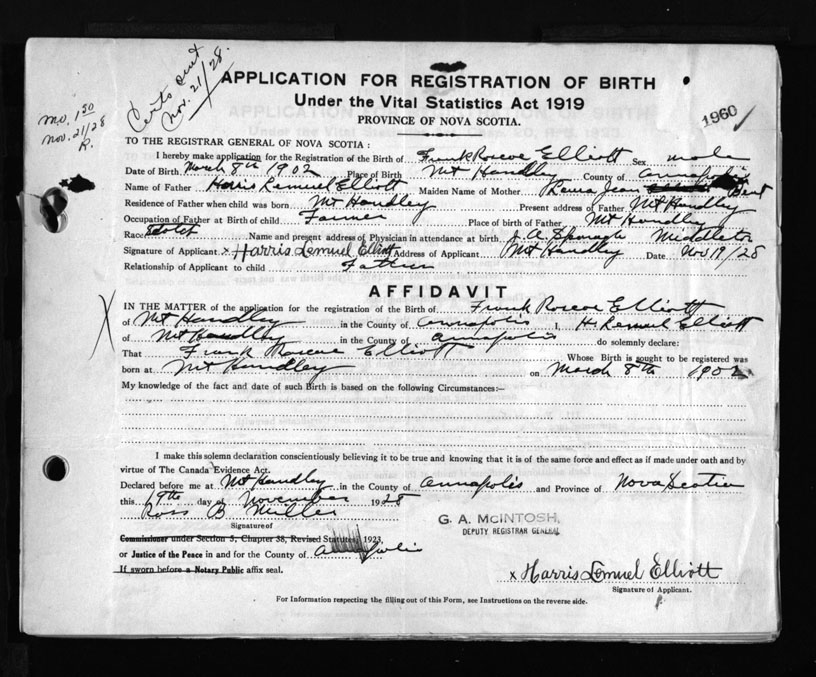 Certs sent
Nov. 21/28.
M.O. 1.50
Nov. 21/28
R.
APPLICATION FOR REGISTRATION OF BIRTH
Under the Vital Statistics Act 1919
PROVINCE OF NOVA SCOTIA.
1960
TO THE REGISTRAR GENERAL OF NOVA SCOTIA :
I hereby make application for the Registration of the Birth of Frank Roscoe Elliott Sex male
Date of Birth March 8th 1902 Place of Birth Mt Handley County of Annapolis
Name of Father Harris Lemuel Elliott Maiden Name of Mother Jean Bent
Residence of Father when child was born Mt Handley Present address of Father Mt Handley
Occupation of Father at Birth of child Farmer Place of birth of Father Mt Handley
Race Scotch Name and present address of Physician in attendance at birth J. A. Sponagle Middleton
Signature of Applicant x Harris Lemuel Elliott Address of Applicant Mt Handley Date Nov 19/28
Relationship of Applicant to child Father
AFFIDAVIT
IN THE MATTER of the application for the registration of the Birth of Frank Roscoe Elliott
of Mt Handley in the County of Annapolis I, H. Lemuel Elliott
of Mt Handley in the County of Annapolis do solemnly declare:
That Frank Roscoe Elliott Whose Birth is sought to be registered was
born at Mt Handley on March 8th 1902
My knowledge of the fact and date of such Birth is based on the following Circumstances:—
I make this solemn declaration conscientiously believing it to be true and knowing that it is of the same force and effect as if made under oath and by
virtue of The Canada Evidence Act.
Declared before me at Mt Handley in the County of Annapolis and Province of Nova Scotia
this 19th day of November 1928
Ross B Miller
Signature of
Commissioner under Section 5, Chapter 38, Revised Statutes, 1923,
or Justice of the Peace in and for the County of Annapolis
If sworn before a Notary Public affix seal.
G. A. McINTOSH,
DEPUTY REGISTRAR GENERAL
x Harris Lemuel Elliott
Signature of Applicant.
For Information respecting the filling out of this Form, see Instructions on the reverse side.